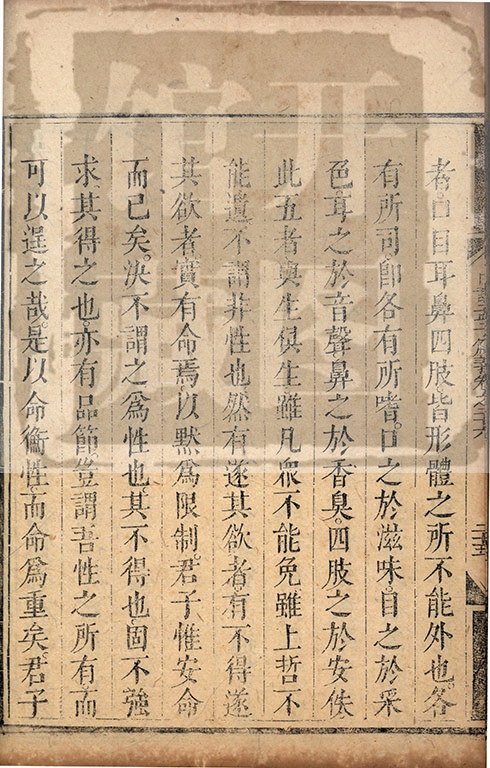 者口目耳鼻四肢皆形體之所不能外也各
有所司即各有所嗜口之於滋味目之於采
色耳之於音聲鼻之於香臭四肢之於安佚
此五者與生俱生雖凡衆不能免雖上哲不
能遺不謂非性也然有遂其欲者有不得遂
其欲者實有命焉以默爲限制君子惟安命
而已矣決不謂之爲性也其不得也固不強
求其得之也亦有品節豈謂吾性之所有而
可以逞之哉是以命衡性而命爲重矣君子